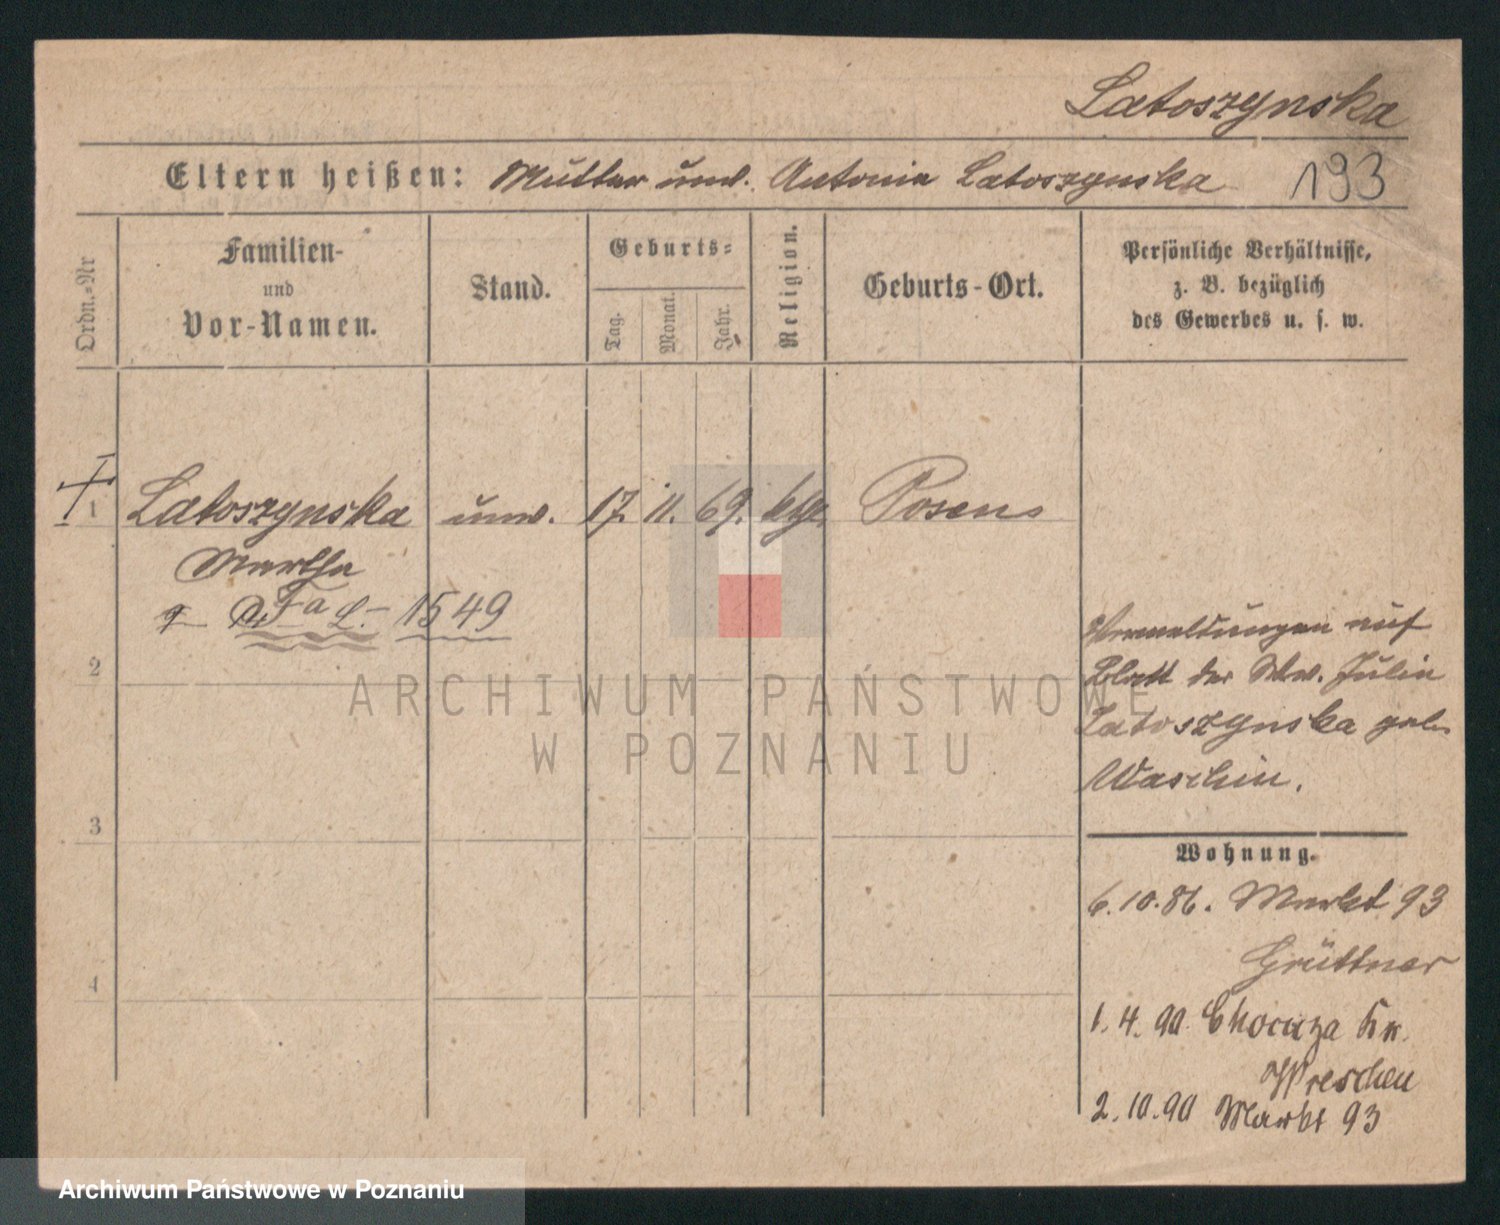 Latoszynska
Eltern heißen: Mutter unv. Antonie Latoszynska 193
Ordn.-Nr
Familien-
und
Vor-Namen.
Stand.
Geburts-
Tag.
Monat.
Jahr.
Religion.
Geburts-Ort.
Persönliche Verhältnisse,
z. B. bezüglich
des Gewerbes u. s. w.
1 Latoszynska unv. 17. 11. 69. ktg. Posen
Martha
Fa L.- 1549
2
3
4
Vermeldungen auf
Blatt der Wwe. Julia
Latoszynska geb.
Waschin.
Wohnung.
6.10.86. Markt 93
Grüttner
1.4.90 Chocicza Kr.
Wreschen
2.10.90 Markt 93
ARCHIWUM PAŃSTWOWE
W POZNANIU
Archiwum Państwowe w Poznaniu